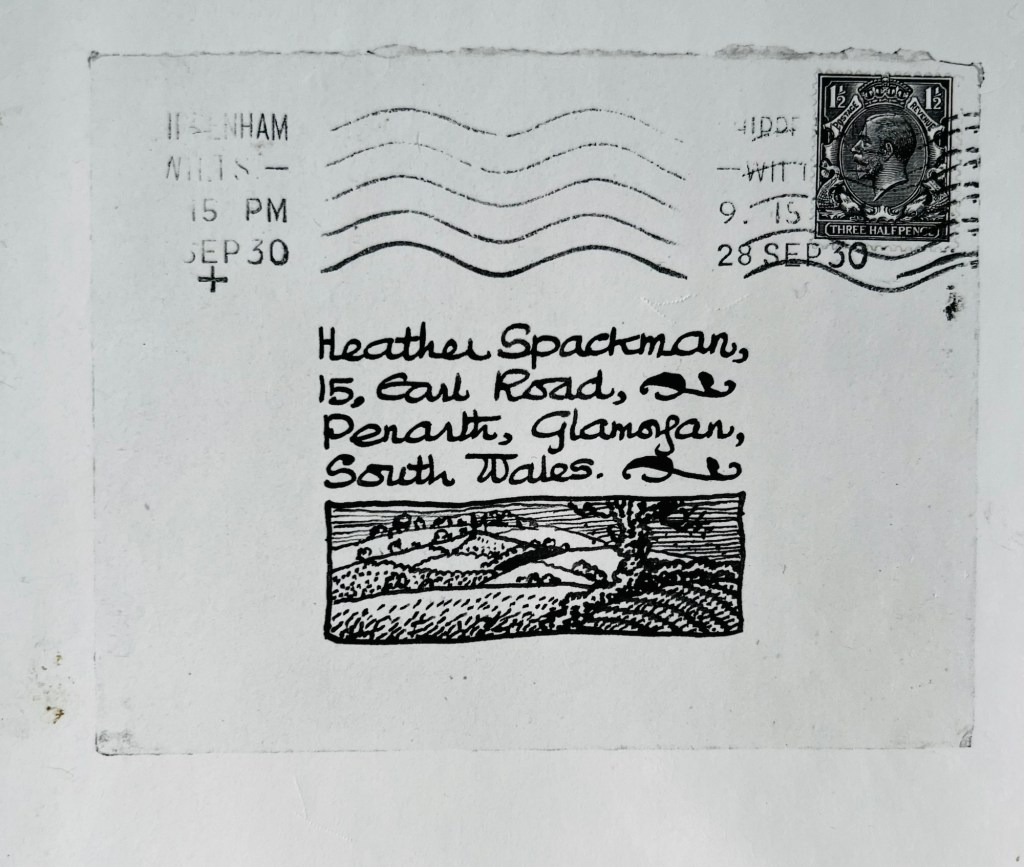 NHAM
WILTS.—
15 PM
SEP 30
—WILT
9. 15
28 SEP 30
1½ 1½
POSTAGE REVENUE
THREE HALFPENCE
Heather Spackman,
15, Earl Road,
Penarth, Glamorgan,
South Wales.